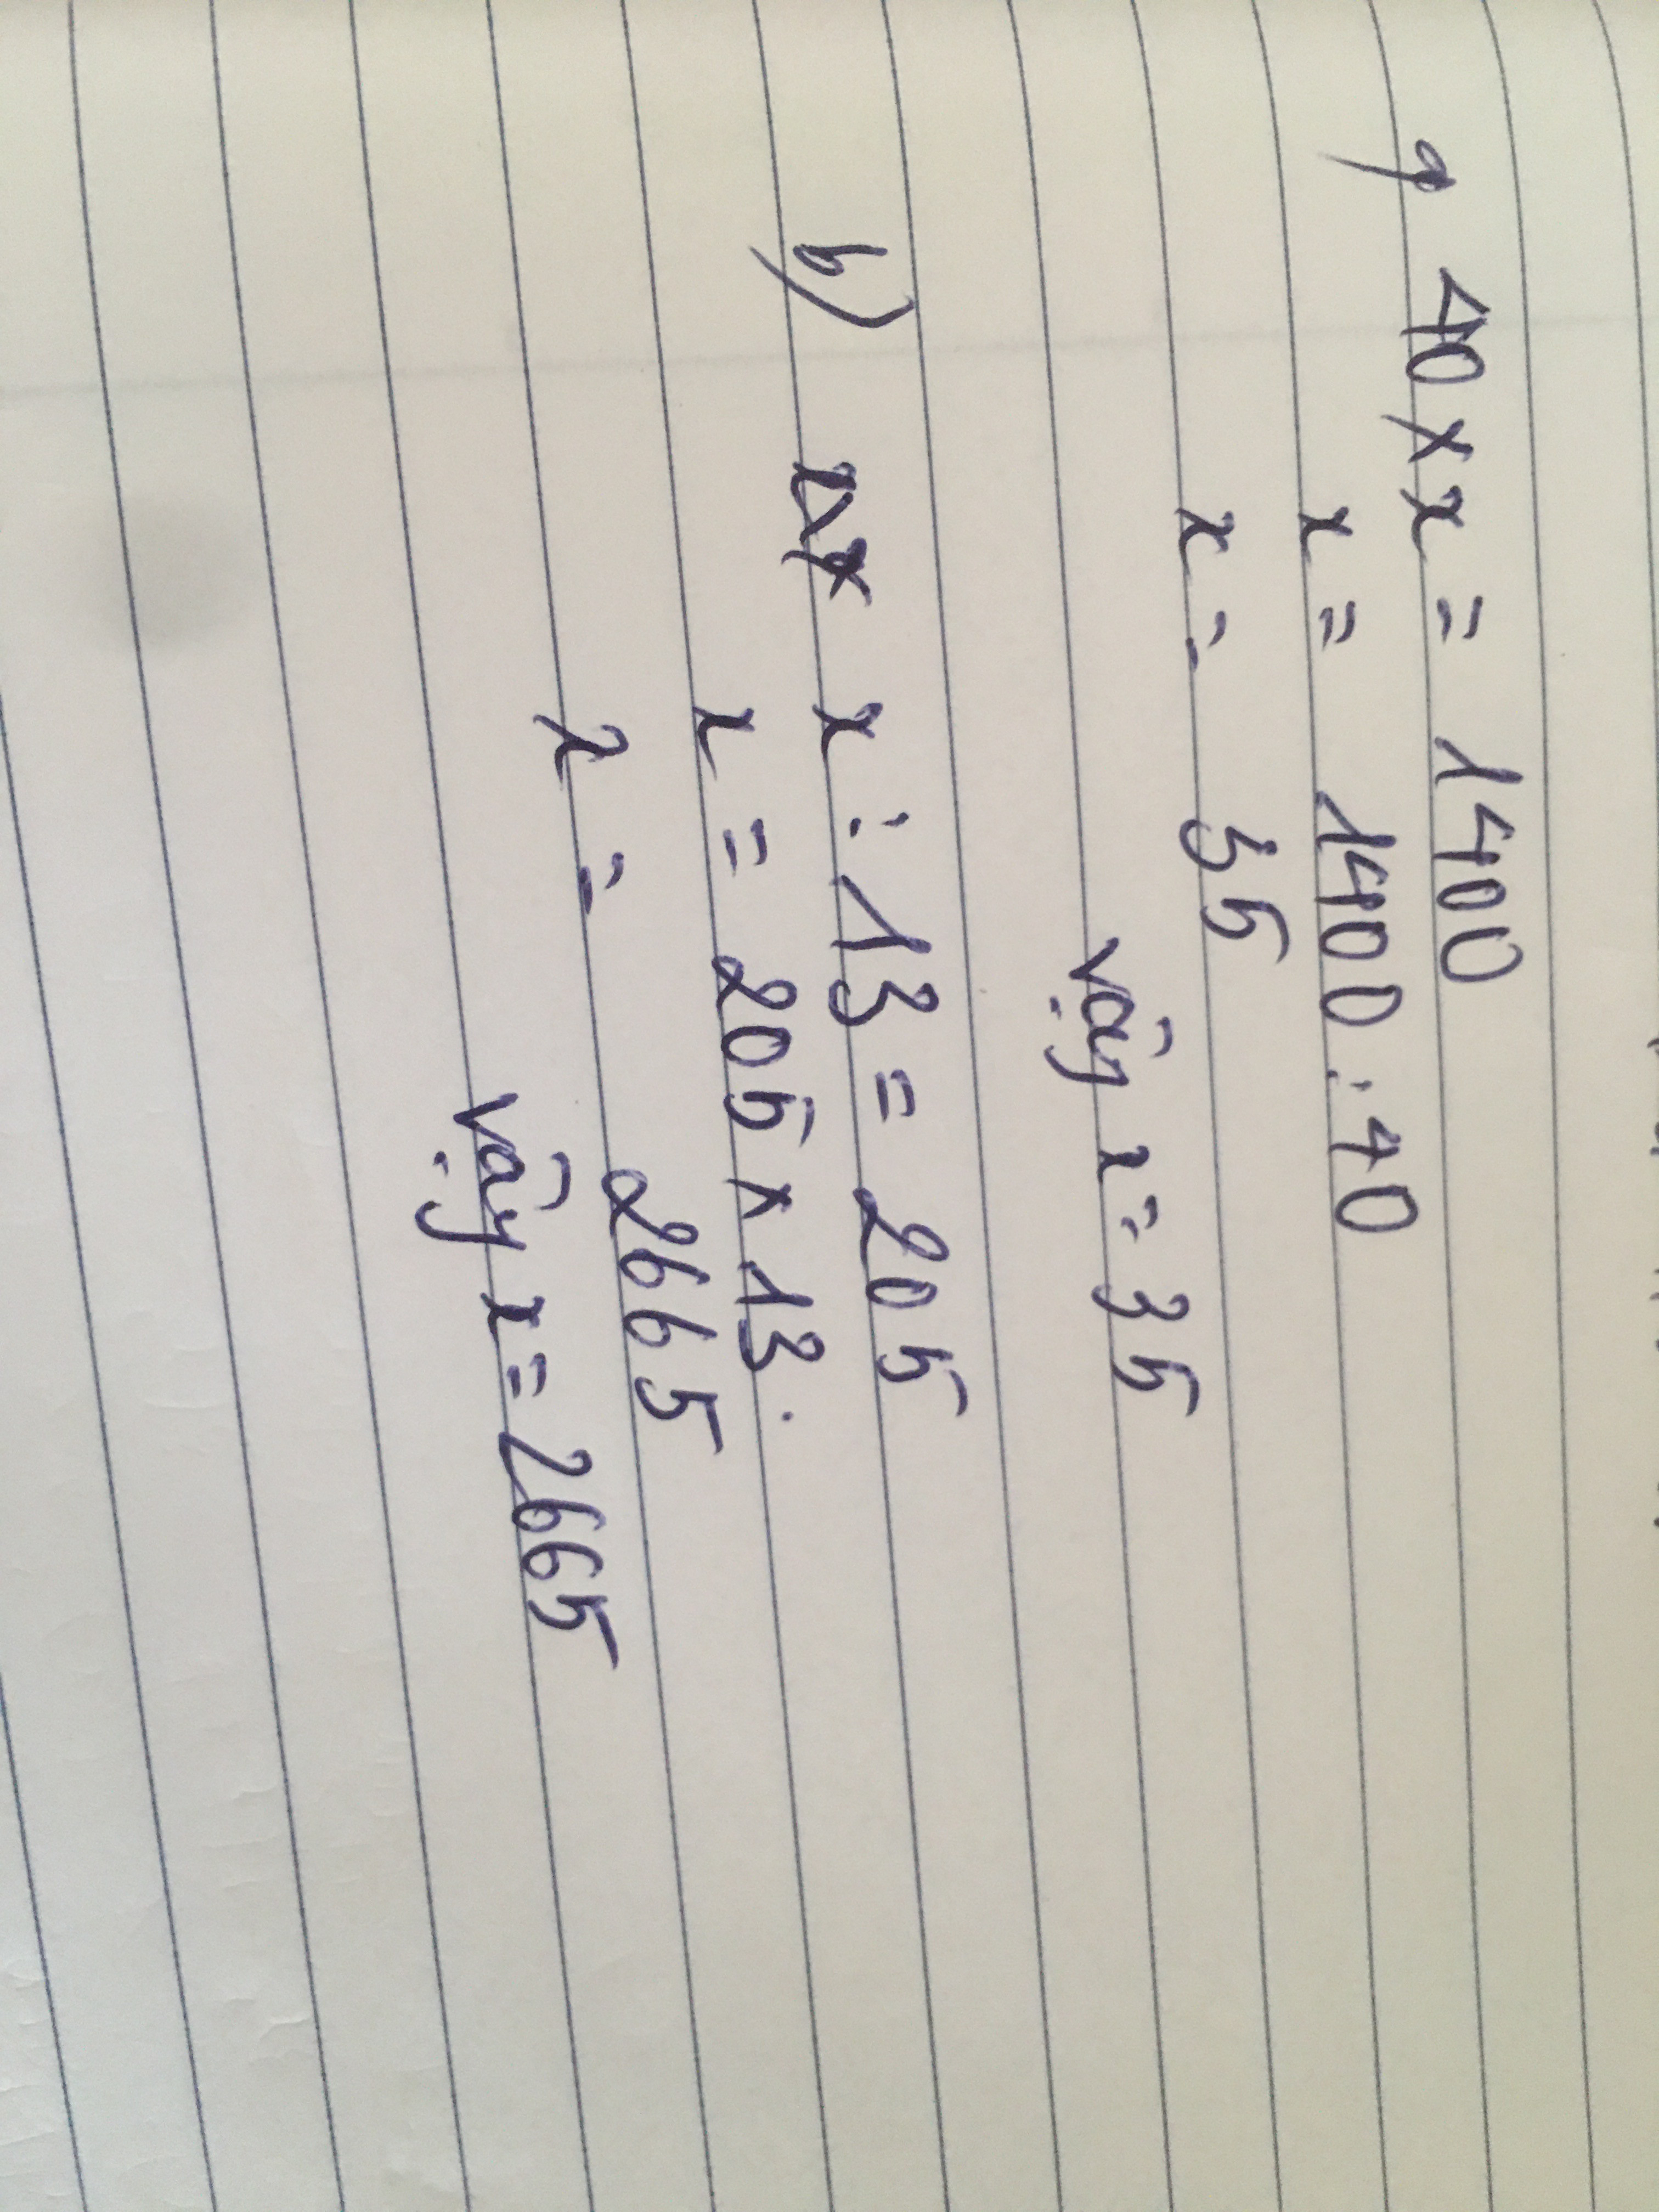 a) 40 x x = 1400
x = 1400 : 40
x = 35
Vậy x = 35
b) x : 13 = 205
x = 205 x 13
x = 2665
Vậy x = 2665